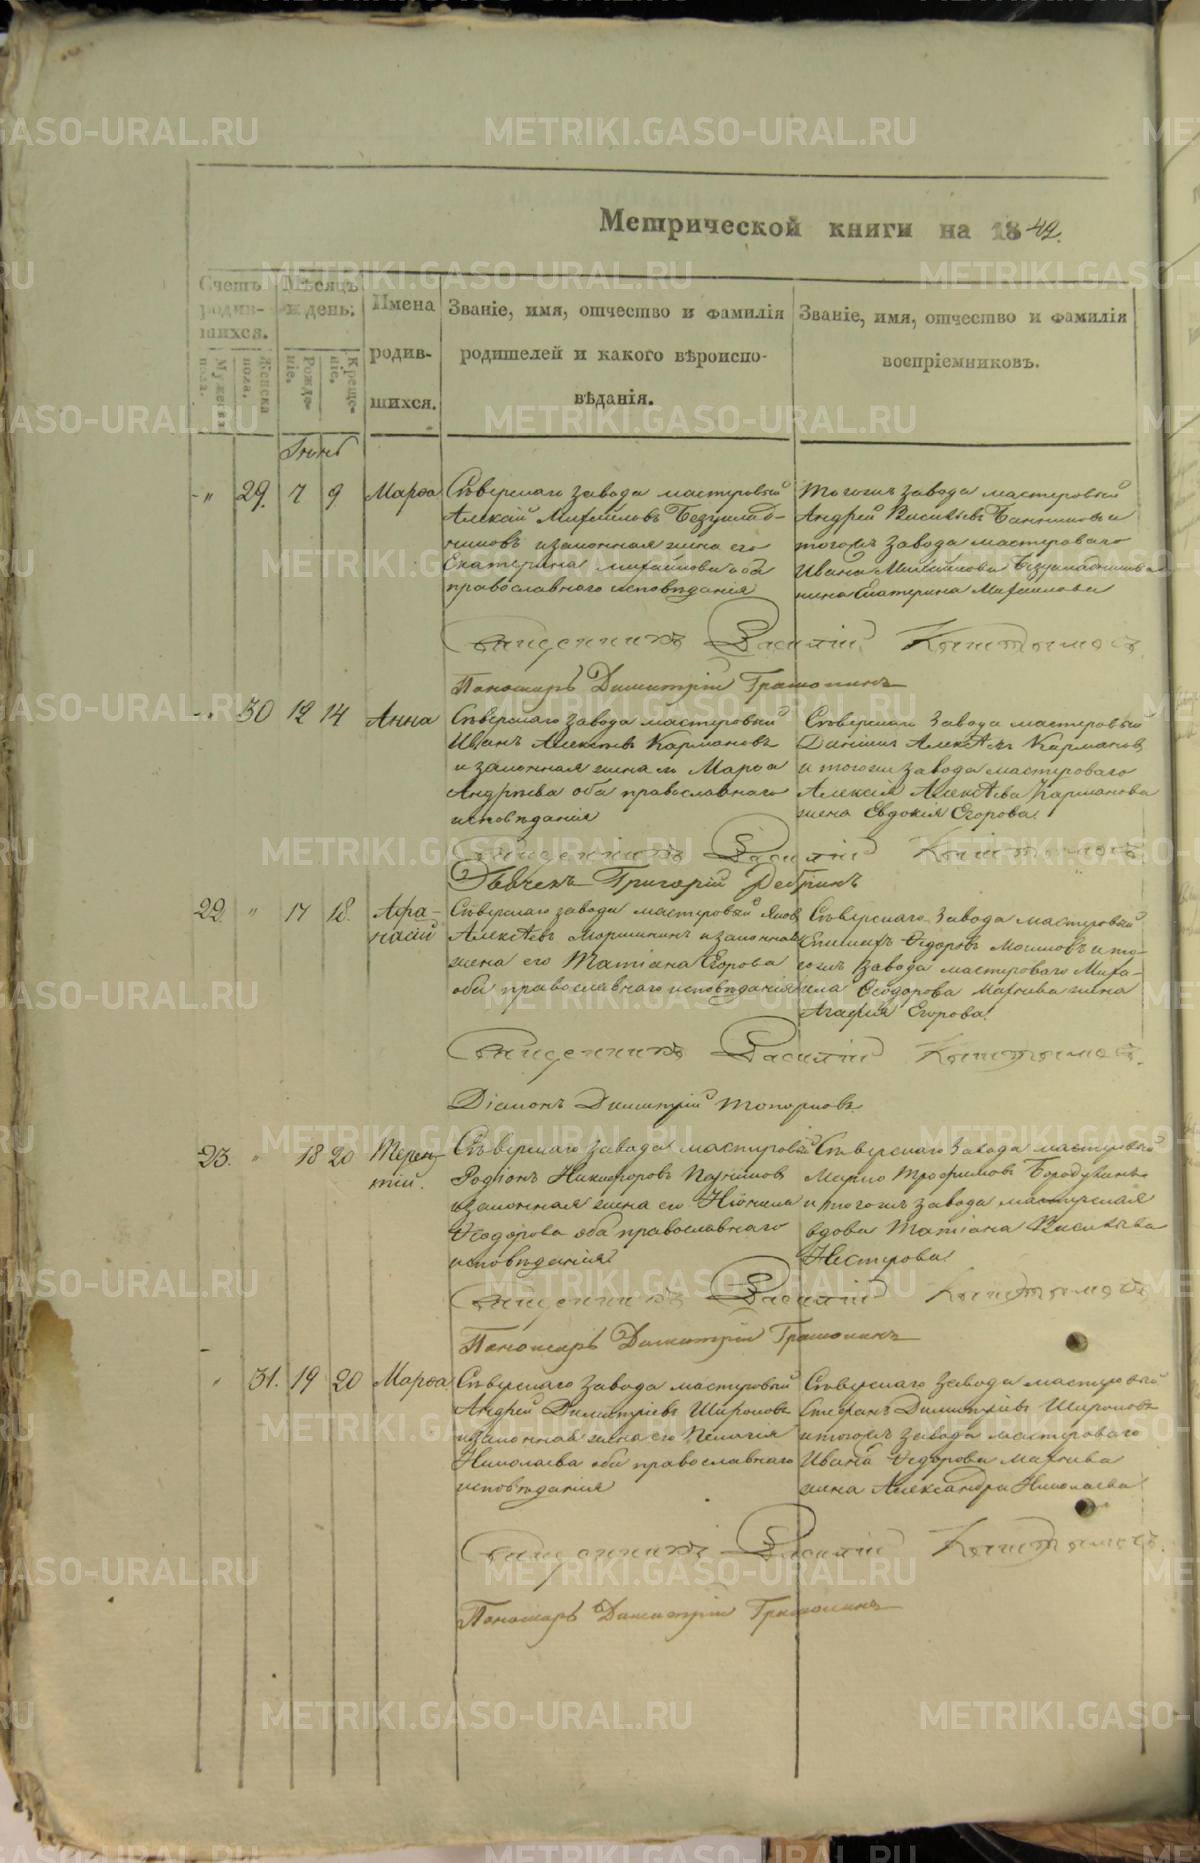 Метрической книги на 1842.
Счетъ родившихся.
Мѣсяцъ и день.
Имена родившихся.
Званіе, имя, отчество и фамилія родителей и какого вѣроисповѣданія.
Званіе, имя, отчество и фамилія воспріемниковъ.
Мужеска пола.
Женска пола.
Рожденіе.
Крещеніе.
Іюнь
" 29. 7 9 Марѳа
Сѣверскаго завода мастеровый
Алексій Михайловъ
и законная жена его
Екатерина Михайлова оба
православнаго исповѣданія
Тогожъ завода мастеровый
Андрей Васильевъ
тогожъ завода мастероваго
Ивана Михайлова
жена Екатерина Михайлова
Священникъ Василій
Пономарь Димитрій
" 30 12 14 Анна
Сѣверскаго завода мастеровый
Иванъ Алексѣевъ Кармановъ
и законная жена его Марѳа
Андрѣева оба православнаго
исповѣданія
Сѣверскаго завода мастеровый
Алексѣевъ Кармановъ
и тогожъ завода мастероваго
Алексія Алексѣева Карманова
жена Евдокія Егорова.
Священникъ Василій
Дьячекъ Григорій
22. " 17 18. Афа-
насій
Сѣверскаго завода мастеровый Яковъ
Алексѣевъ и законная
жена его Татіана Егорова
оба православнаго исповѣданія
Сѣверскаго завода мастеровый
Ѳедоровъ и то-
гожъ завода мастероваго Миха-
ила Ѳеодорова жена
Агафія Егорова.
Священникъ Василій
Діаконъ Димитрій Топорковъ
23. " 18 20 Терен-
тій.
Сѣверскаго завода мастеровый
Родіонъ Никифоровъ
и законная жена его Неонила
Ѳеодорова оба православнаго
исповѣданія
Сѣверскаго завода мастеровый
Трофимовъ
и тогожъ завода мастерская
вдова Татіана Васильева
Нестерова.
Священникъ Василій
Пономарь Димитрій
" 31. 19 20 Марѳа
Сѣверскаго завода мастеровый
Андрей Димитріевъ Широковъ
и законная жена его Пелагія
Николаева оба православнаго
исповѣданія
Сѣверскаго завода мастеровый
Стефанъ Димитріевъ Широковъ
и тогожъ завода мастероваго
Ивана Ѳедорова
жена Александра Николаева
Священникъ Василій
Пономарь Димитрій
METRIKI.GASO-URAL.RU